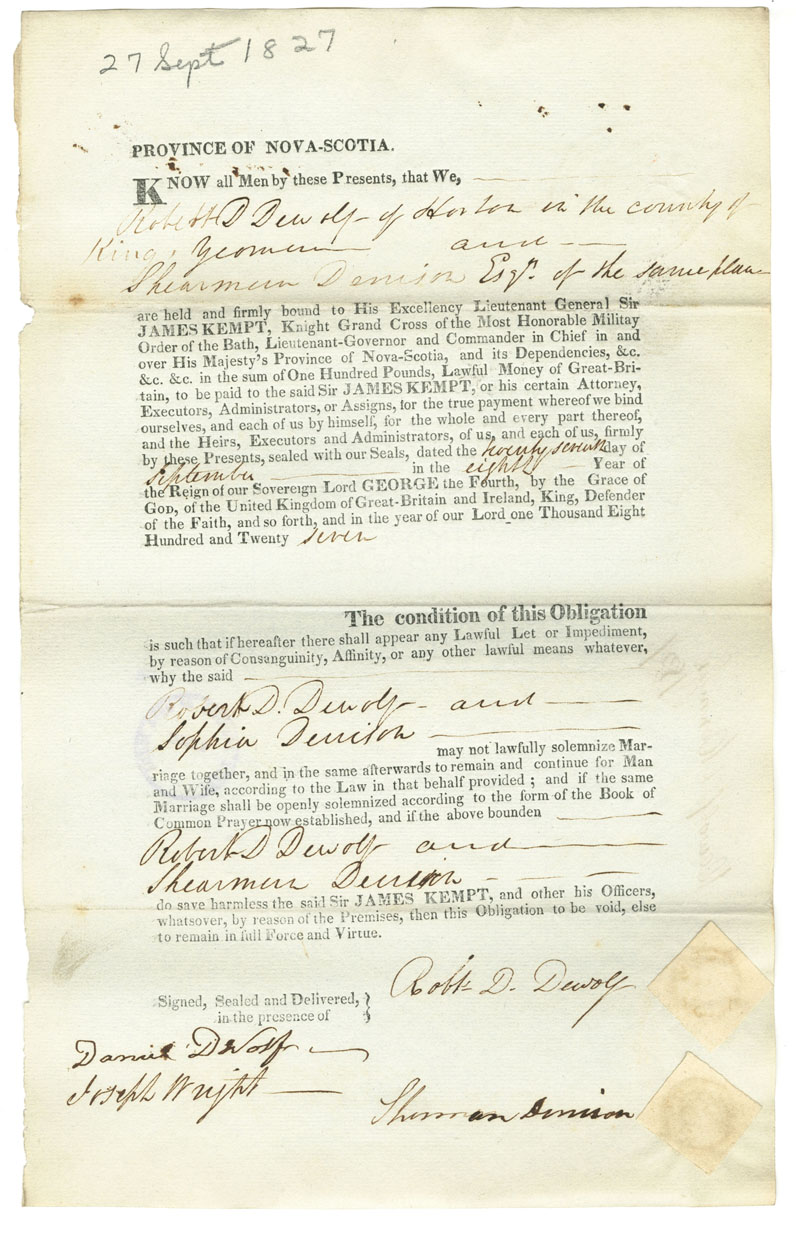 27 Sept 1827
PROVINCE OF NOVA-SCOTIA.
KNOW all Men by these Presents, that We,
Robert D Dewolf of Horton in the county of
Kings Yeomen and
Shearmen Denison Esqr. of the same place
are held and firmly bound to His Excellency Lieutenant General Sir
JAMES KEMPT, Knight Grand Cross of the Most Honorable Militay
Order of the Bath, Lieutenant-Governor and Commander in Chief in and
over His Majesty's Province of Nova-Scotia, and its Dependencies, &c.
&c. &c. in the sum of One Hundred Pounds, Lawful Money of Great-Bri-
tain, to be paid to the said Sir JAMES KEMPT, or his certain Attorney,
Executors, Administrators, or Assigns, for the true payment whereof we bind
ourselves, and each of us by himself, for the whole and every part thereof,
and the Heirs, Executors and Administrators, of us, and each of us, firmly
by these Presents, sealed with our Seals, dated the twenty seventh day of
September in the eighth Year of
the Reign of our Sovereign Lord GEORGE the Fourth, by the Grace of
GOD, of the United Kingdom of Great-Britain and Ireland, King, Defender
of the Faith, and so forth, and in the year of our Lord one Thousand Eight
Hundred and Twenty seven
The condition of this Obligation
is such that if hereafter there shall appear any Lawful Let or Impediment,
by reason of Consanguinity, Affinity, or any other lawful means whatever,
why the said
Robert D. Dewolf and
Sophia Denison
may not lawfully solemnize Mar-
riage together, and in the same afterwards to remain and continue for Man
and Wife, according to the Law in that behalf provided; and if the same
Marriage shall be openly solemnized according to the form of the Book of
Common Prayer now established, and if the above bounden
Robert D Dewolf and
Shearmen Denison
do save harmless the said Sir JAMES KEMPT, and other his Officers,
whatsover, by reason of the Premises, then this Obligation to be void, else
to remain in full Force and Virtue.
Robt. D. Dewolf
Signed, Sealed and Delivered,
in the presence of
Daniel DWolf
Joseph Wright
Sherman Denison